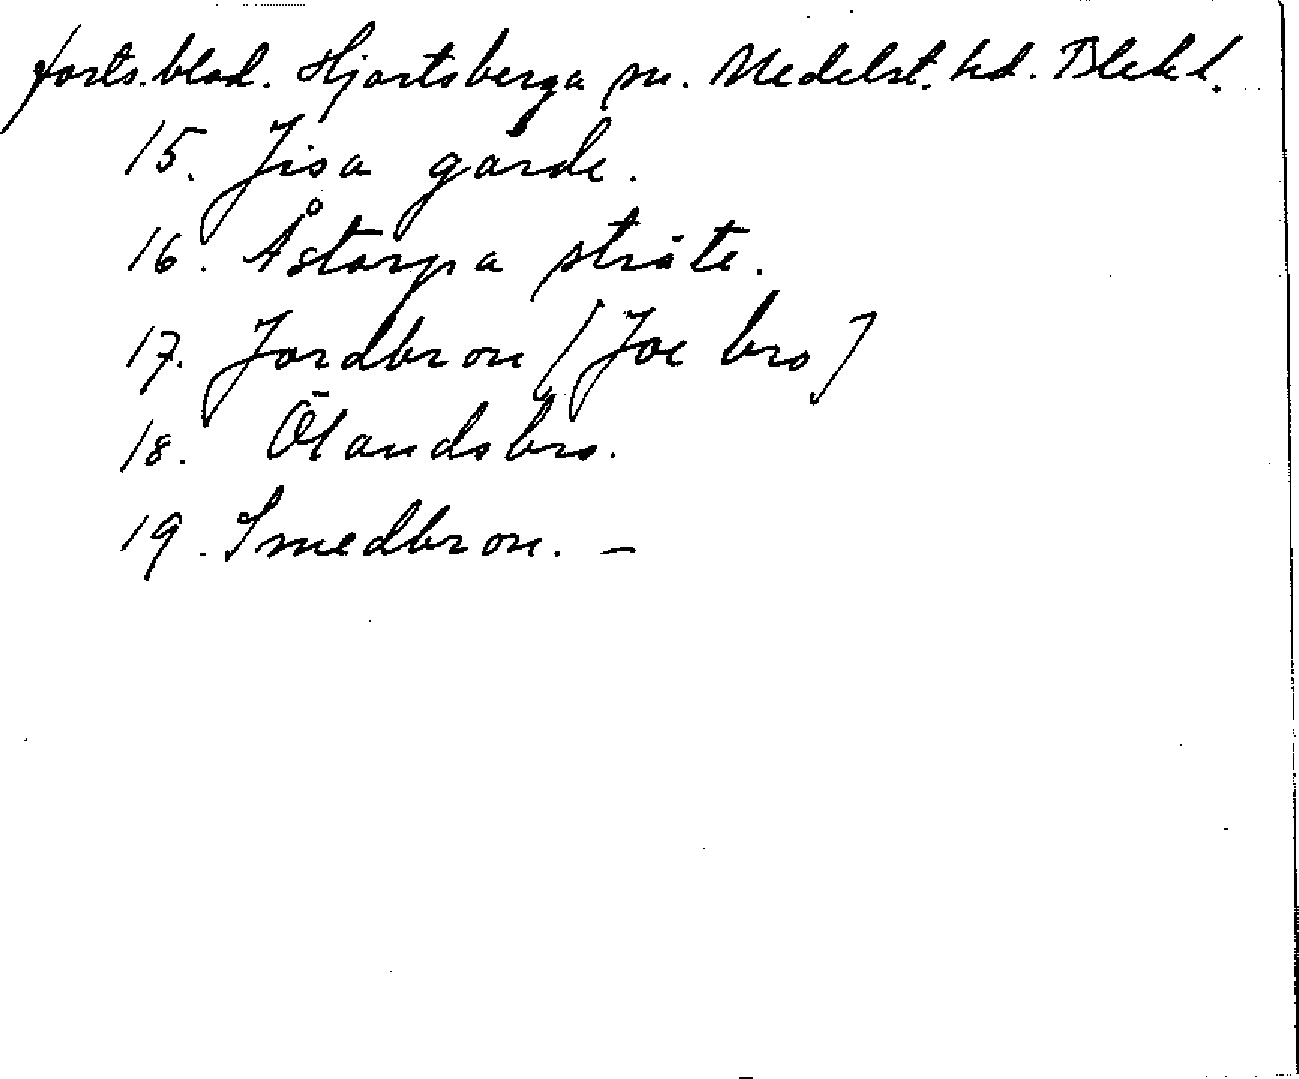 forts.blad. Hjortsberga sn. Medelst. hd. Blekl.
15. Jisa gårde.
16. Åstorpa stråte.
17. Jordbron [Joe bro]
18. Ölandsbro.
19. Smedbron. –